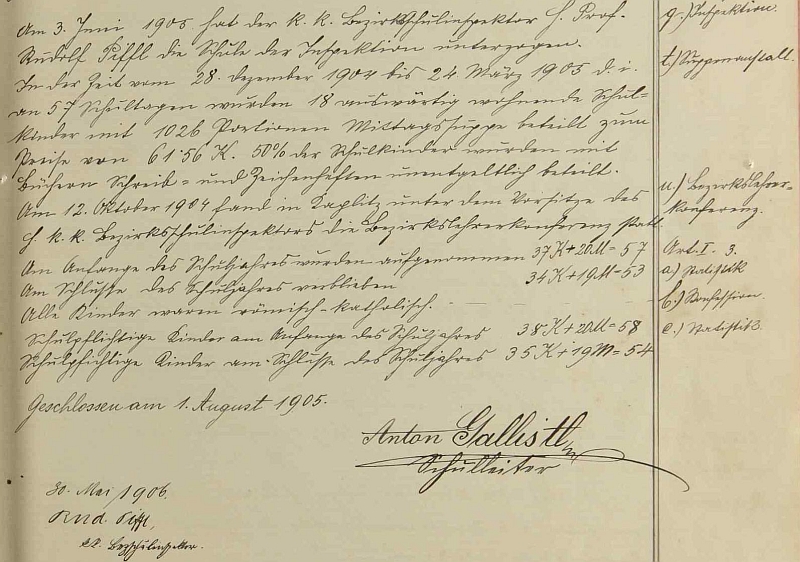 Am 3. Juni 1905 hat der k. k. Bezirksschulinspektor H. Prof.
Rudolf Piffl die Schule der Inspektion unterzogen.
In der Zeit vom 28. Dezember 1904 bis 24 März 1905 d. i.
an 57 Schultagen wurden 18 auswärtig wohnende Schul=
kinder mit 1026 Portionen Mittagssuppe beteilt zum
Preise von 61·56 K. 50% der Schulkinder wurden mit
Büchern Schreib= und Zeichenheften unentgeltlich beteilt.
Am 12. Oktober 1904 fand in Kaplitz unter dem Vorsitze des
H. k. k. Bezirksschulinspektors die Bezirkslehrerkonferenz statt.
Am Anfange des Schuljahres wurden aufgenommen 37 K + 20 M = 57
Am Schlusse des Schuljahres verblieben 34 K + 19 M = 53
Alle Kinder waren römisch-katholisch.
Schulpflichtige Kinder am Anfange des Schuljahres 38 K + 20 M = 58
Schulpflichtige Kinder am Schlusse des Schuljahres 35 K + 19 M = 54
Geschlossen am 1. August 1905.
Anton Gallistl
Schulleiter
30. Mai 1906.
Rud. Piffl,
k.k. Bezschulinspektor.
q.) Inspektion.
t.) Suppenanstalt.
u.) Bezirkslehrer-
konferenz.
Art. I. 3.
a.) Statistik
b.) Konfession.
c.) Statistik.